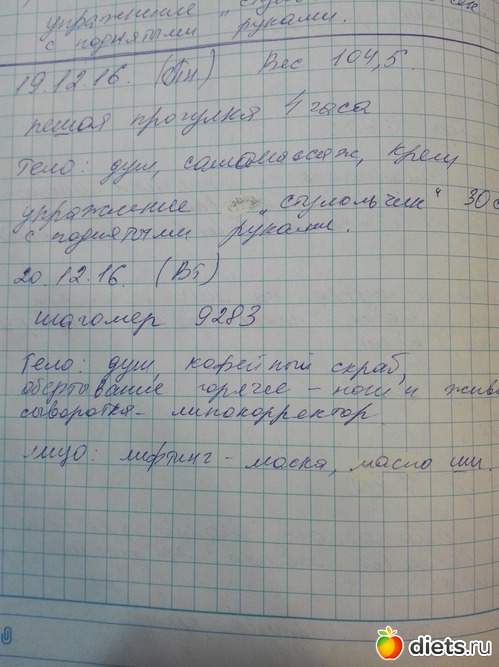 упражнение „стуль
с поднятыми руками.
19.12.16. (Пн) Вес 104,5.
пешая прогулка 4 часа
Тело: душ, самомассаж, крем
упражнение „стульчик“ 30 с
с поднятыми руками.
20.12.16. (Вт)
шагомер 9283
Тело: душ, кофейный скраб,
обертывание горячее - ноги и живо
сыворотка - липокорректор
лицо: лифтинг - маска, масло ши.
diets.ru